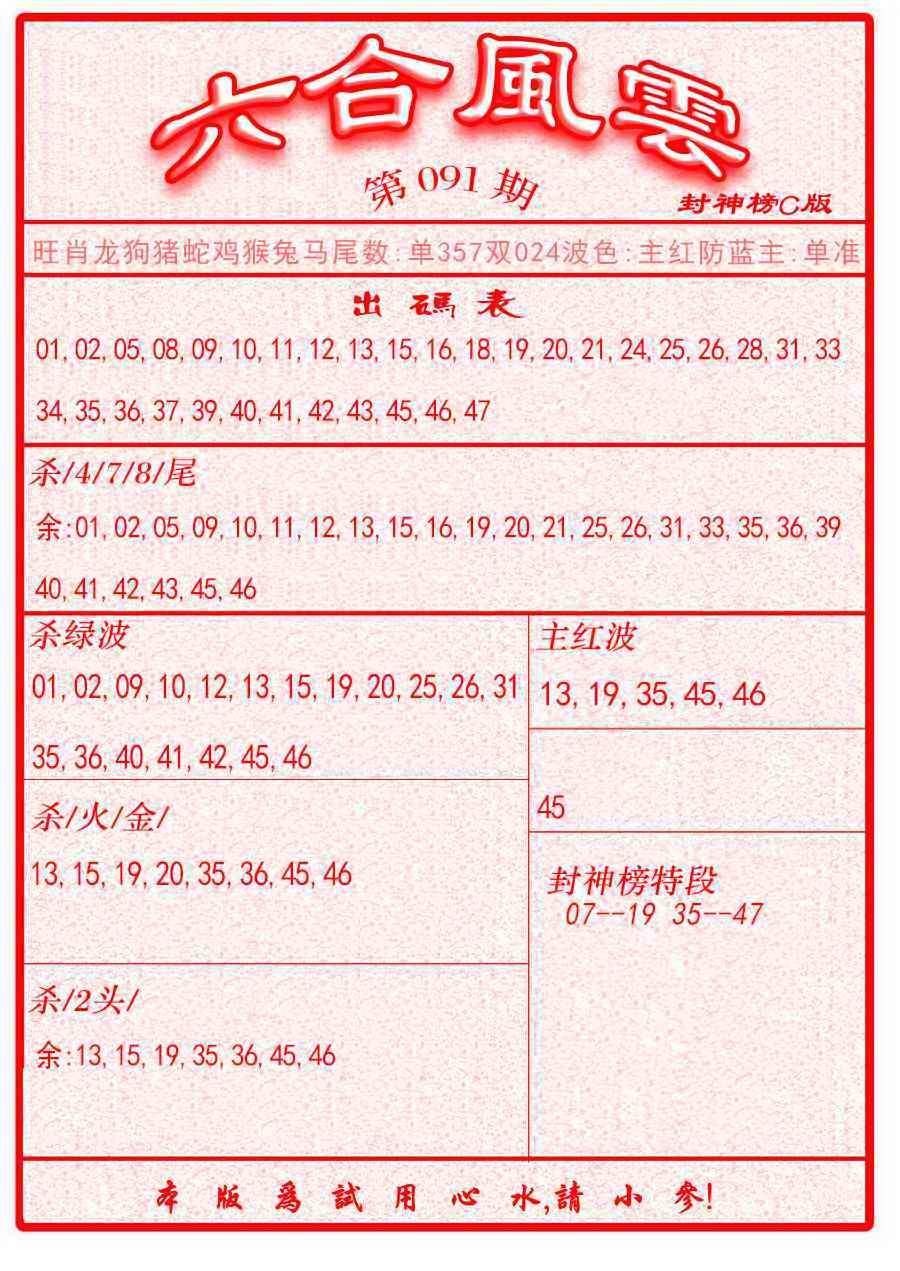 六合風雲
第091期
封神榜C版
旺肖龙狗猪蛇鸡猴兔马尾数:单357双024波色:主红防蓝主:单准
出碼表
01,02,05,08,09,10,11,12,13,15,16,18,19,20,21,24,25,26,28,31,33
34,35,36,37,39,40,41,42,43,45,46,47
杀/4/7/8/尾
余:01,02,05,09,10,11,12,13,15,16,19,20,21,25,26,31,33,35,36,39
40,41,42,43,45,46
杀绿波
01,02,09,10,12,13,15,19,20,25,26,31
35,36,40,41,42,45,46
主红波
13,19,35,45,46
45
杀/火/金/
13,15,19,20,35,36,45,46
封神榜特段
07--19 35--47
杀/2头/
余:13,15,19,35,36,45,46
本版爲試用心水,請小參!